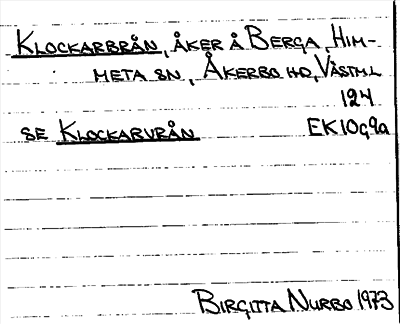 KLOCKARBRÅN, ÅKER Å BERGA, HIM-
META SN, ÅKERBO HD, VÄSTML
124
SE KLOCKARVRÅN EK10g9a
BIRGITTA NURBO 1973